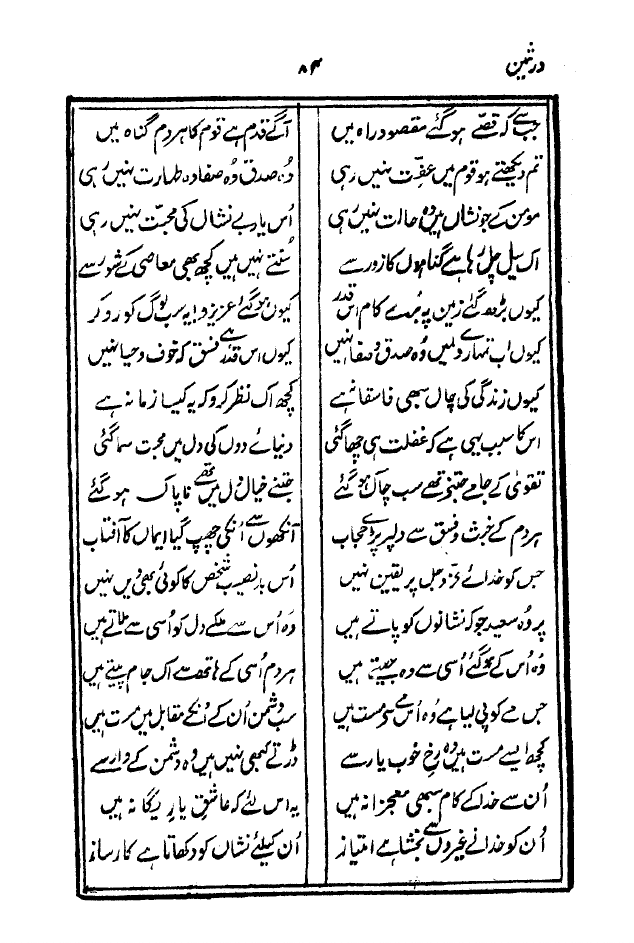 درثمین ۸۴
جب سے کہ قصّے ہو گئے مقصود راہ میں آگے قدم ہے قوم کا ہر دم گناہ میں
تم دیکھتے ہو قوم میں عفّت نہیں رہی وُہ صدق وُہ صفا وہ طہارت نہیں رہی
مومن کے جو نشاں ہیں وُہ حالت نہیں رہی اُس یارِ بے نشاں کی محبّت نہیں رہی
اک سیل چل رہا ہے گناہوں کا زور سے سُنتے نہیں ہیں کچھ بھی معاصی کے شور سے
کیوں بڑھ گئے زمیں پہ بُرے کام اس قدر کیوں ہو گئے عزیزو! یہ سب لوگ کور و کر
کیوں اب تمہارے دل میں وُہ صدق و صفا نہیں کیوں اس قدر ہے فسق کہ خوف و حیا نہیں
کیوں زندگی کی چال سبھی فاسقانہ ہے کچھ اک نظر کرو کہ یہ کیسا زمانہ ہے
اس کا سبب یہی ہے کہ غفلت ہی چھا گئی دنیائے دوں کی دل میں محبت سما گئی
تقویٰ کے جامے جتنے تھے سب چاک ہو گئے جتنے خیال دل میں تھے ناپاک ہو گئے
ہر دم کے خبث و فسق سے دل پر پڑے حجاب آنکھوں سے اُن کی چھپ گیا ایماں کا آفتاب
جس کو خدائے عزّ و جل پر یقیں نہیں اُس بد نصیب شخص کا کوئی بھی دیں نہیں
پر وُہ سعید جو کہ نشانوں کو پاتے ہیں وُہ اُس سے مل کے دل کو اُسی سے ملاتے ہیں
وُہ اُس کے ہو گئے اُسی سے وہ جیتے ہیں ہر دم اُسی کے ہاتھ سے اک جام پیتے ہیں
جس مے کو پی لیا ہے وُہ اُس مے سے مست ہیں سب دشمن اُن کے اُنکے مقابل میں پست ہیں
کچھ ایسے مست ہیں وُہ رخِ خوبِ یار سے ڈرتے کبھی نہیں ہیں وُہ دشمن کے وار سے
اُن سے خدا کے کام سبھی معجزانہ ہیں یہ اس لئے کہ عاشقِ یارِ یگانہ ہیں
اُن کو خدا نے غیروں سے بخشا ہے امتیاز اُن کیلئے نشاں کو دکھاتا ہے کارساز